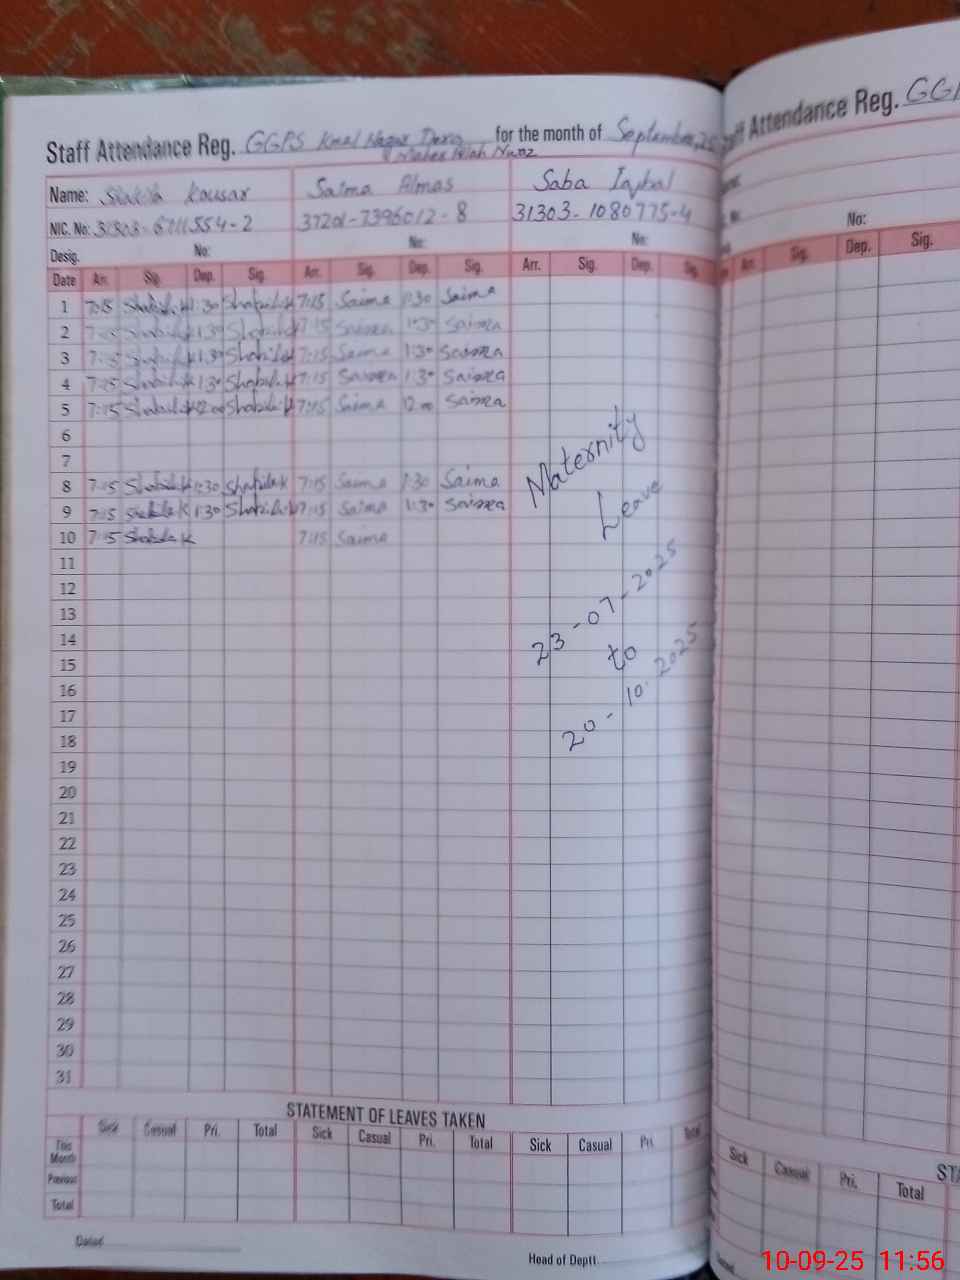 Staff Attendance Reg. GGPS Nagar for the month of September, 25
Name: Shakila Kousar Saima Almas Saba Iqbal
NIC. No: 31303- 554-2 37201-7396012-8 31303-1080775-4
Desig. No: No: No:
Date Arr. Sig. Dep. Sig. Arr. Sig. Dep. Sig. Arr. Sig. Dep. Sig.
1 7:15 Shakila K 1:30 Shakila K 7:15 Saima 1:30 Saima
2 7:15 Shakila K 1:30 Shakila K 7:15 Saima 1:30 Saima
3 7:15 Shakila K 1:30 Shakila K 7:15 Saima 1:30 Saima
4 7:15 Shakila K 1:30 Shakila K 7:15 Saima 1:30 Saima
5 7:15 Shakila K 12:00 Shakila K 7:15 Saima 12:00 Saima
6
7
8 7:15 Shakila K 1:30 Shakila K 7:15 Saima 1:30 Saima
9 7:15 Shakila K 1:30 Shakila K 7:15 Saima 1:30 Saima
10 7:15 Shakila K 7:15 Saima
Maternity
Leave
23-07-2025
to
20-10-2025
11
12
13
14
15
16
17
18
19
20
21
22
23
24
25
26
27
28
29
30
31
STATEMENT OF LEAVES TAKEN
Sick Casual Pri. Total Sick Casual Pri. Total Sick Casual Pri. Total
This Month
Previous
Total
Dated
Head of Deptt.
ff Attendance Reg.
No:
Arr. Sig. Dep. Sig.
Sick Casual Pri. Total
10-09-25 11:56